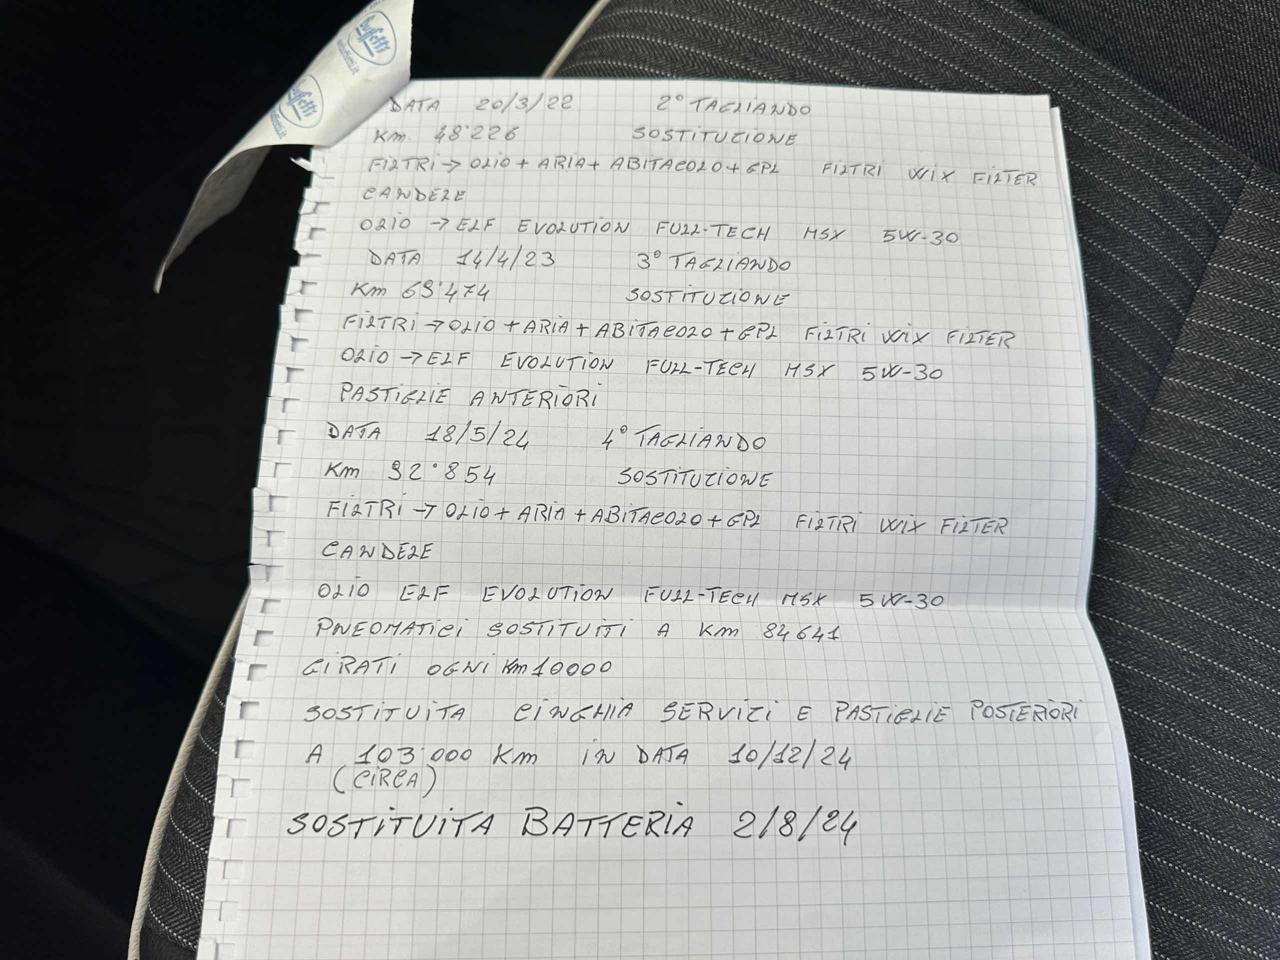 Buffetti
Buffetti
DATA 20/3/22 2° TAGLIANDO
Km. 48'226 SOSTITUZIONE
FILTRI → OLIO + ARIA + ABITACOLO + GPL FILTRI WIX FILTER
CANDELE
OLIO → ELF EVOLUTION FULL-TECH MSX 5W-30
DATA 14/4/23 3° TAGLIANDO
Km 69'474 SOSTITUZIONE
FILTRI → OLIO + ARIA + ABITACOLO + GPL FILTRI WIX FILTER
OLIO → ELF EVOLUTION FULL-TECH MSX 5W-30
PASTIGLIE ANTERIORI
DATA 18/5/24 4° TAGLIANDO
Km 92'854 SOSTITUZIONE
FILTRI → OLIO + ARIA + ABITACOLO + GPL FILTRI WIX FILTER
CANDELE
OLIO ELF EVOLUTION FULL-TECH MSX 5W-30
PNEOMATICI SOSTITUITI A Km 84641
GIRATI OGNI Km 10000
SOSTITUITA CINGHIA SERVIZI E PASTIGLIE POSTERIORI
A 103'000 Km IN DATA 10/12/24
(CIRCA)
SOSTITUITA BATTERIA 2/8/24